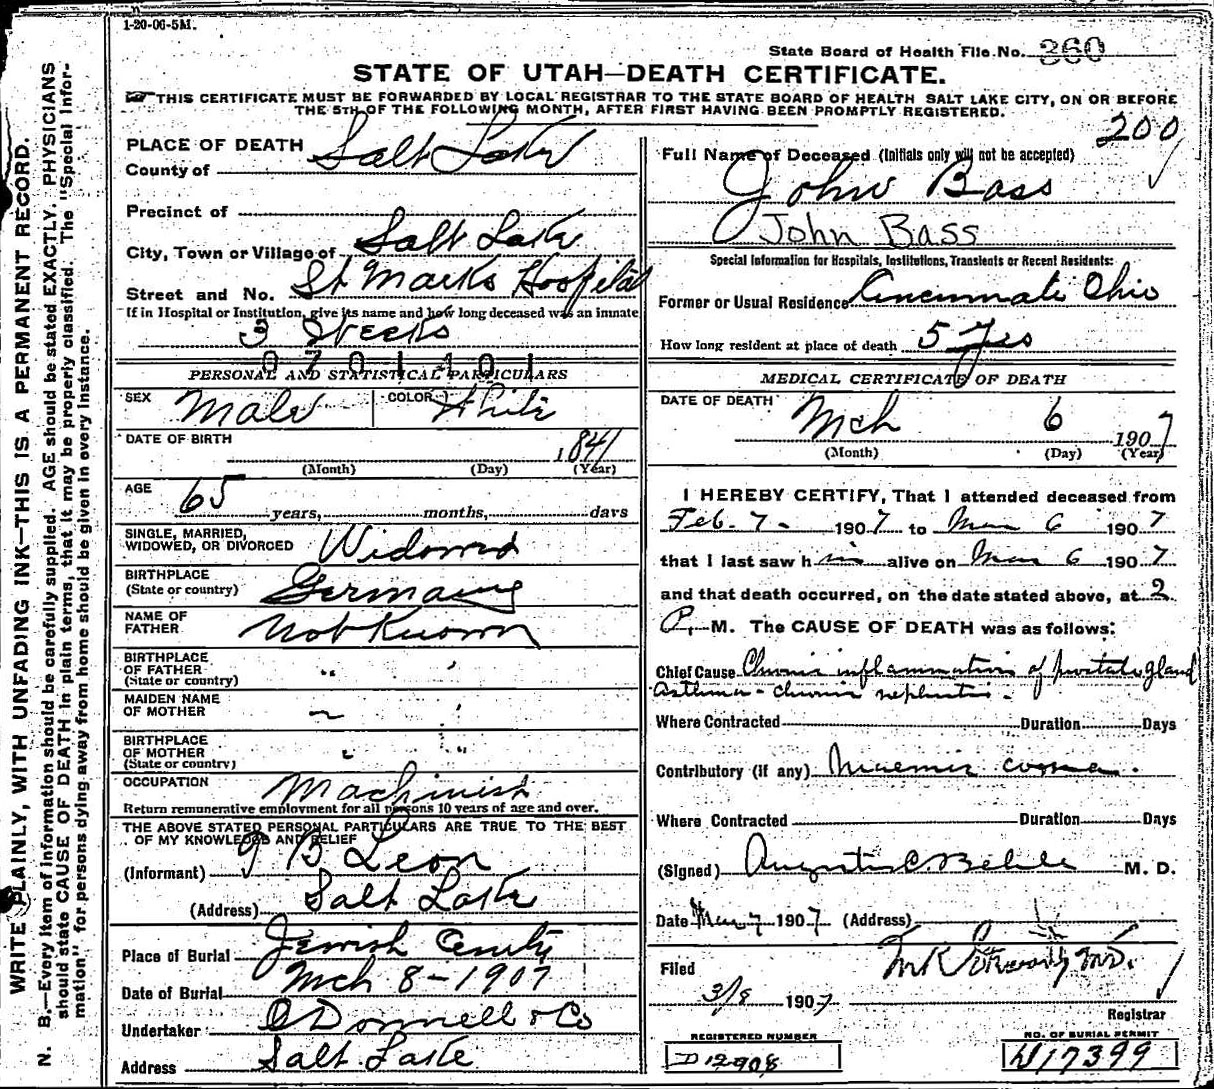 1-20-06-5M.
State Board of Health File No. 360
STATE OF UTAH—DEATH CERTIFICATE.
THIS CERTIFICATE MUST BE FORWARDED BY LOCAL REGISTRAR TO THE STATE BOARD OF HEALTH SALT LAKE CITY, ON OR BEFORE
THE 5TH OF THE FOLLOWING MONTH, AFTER FIRST HAVING BEEN PROMPTLY REGISTERED.
200
WRITE PLAINLY, WITH UNFADING INK—THIS IS A PERMANENT RECORD.
N. B.—Every item of information should be carefully supplied. AGE should be stated EXACTLY. PHYSICIANS
should state CAUSE OF DEATH in plain terms, that it may be properly classified. The "Special Infor-
mation" for persons dying away from home should be given in every instance.
PLACE OF DEATH
County of Salt Lake
Precinct of
City, Town or Village of Salt Lake
Street and No. St Marks Hospital
If in Hospital or Institution, give its name and how long deceased was an inmate
3 Weeks
0701401
PERSONAL AND STATISTICAL PARTICULARS
SEX Male COLOR White
DATE OF BIRTH 1841
(Month) (Day) (Year)
AGE 65 years, months, days
SINGLE, MARRIED,
WIDOWED, OR DIVORCED Widowed
BIRTHPLACE
(State or country) Germany
NAME OF
FATHER Not Known
BIRTHPLACE
OF FATHER "
(State or country)
MAIDEN NAME
OF MOTHER
BIRTHPLACE
OF MOTHER
(State or country)
OCCUPATION Machinist
Return remunerative employment for all persons 10 years of age and over.
THE ABOVE STATED PERSONAL PARTICULARS ARE TRUE TO THE BEST
OF MY KNOWLEDGE AND BELIEF
(Informant) B Leon
(Address) Salt Lake
Place of Burial Jewish Cemty
Date of Burial Mch 8-1907
Undertaker O Donnell & Co
Address Salt Lake
Full Name of Deceased (Initials only will not be accepted)
John Bass
John Bass
Special Information for Hospitals, Institutions, Transients or Recent Residents:
Former or Usual Residence Cincinnati Ohio
How long resident at place of death 5 Yrs
MEDICAL CERTIFICATE OF DEATH
DATE OF DEATH Mch 6 1907
(Month) (Day) (Year)
I HEREBY CERTIFY, That I attended deceased from
Feb. 7 - 1907 to Mar 6 1907
that I last saw him alive on Mar 6 1907
and that death occurred, on the date stated above, at 2
P. M. The CAUSE OF DEATH was as follows:
Chief Cause Chronic inflammation of prostate gland
Asthma - chronic nephritis -
Where Contracted Duration Days
Contributory (if any) Uraemic coma.
Where Contracted Duration Days
(Signed) C. Behle M. D.
Date Mar 7 1907 (Address)
Filed
3/8 1907
Registrar
REGISTERED NUMBER
D 12908
NO. OF BURIAL PERMIT
W17399